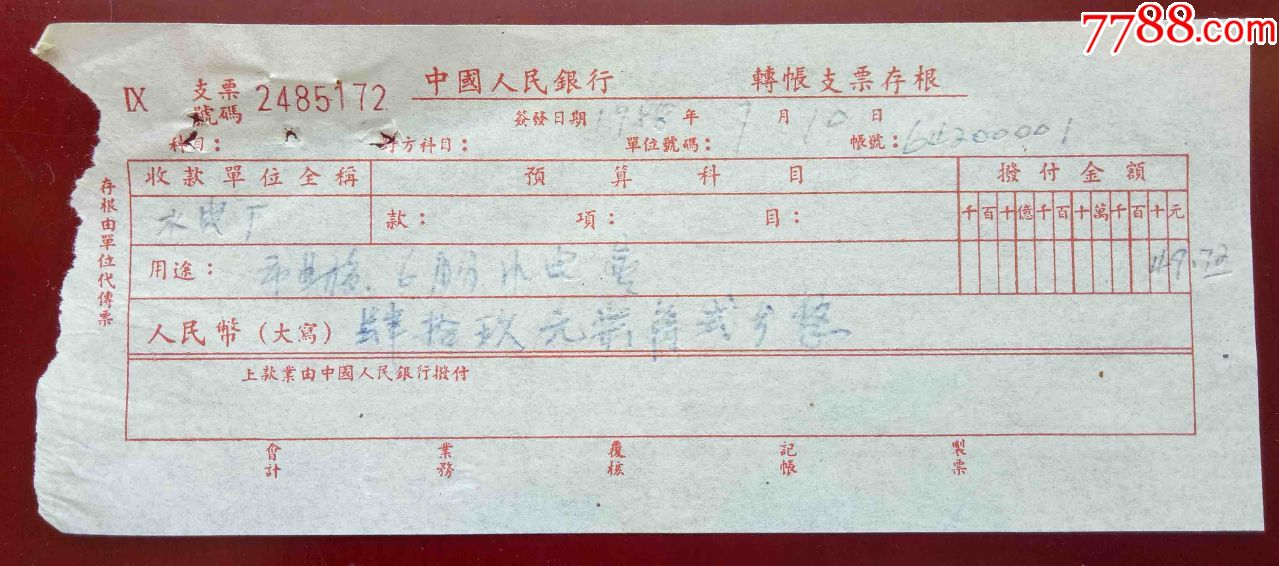 7788.com
中國人民銀行 轉帳支票存根
IX 支票號碼 2485172
簽發日期 年 7月10日
科目： 對方科目： 單位號碼： 帳號：64200001
收款單位全稱 預算科目 撥付金額
水電厂 款： 項： 目： 千百十億千百十萬千百十元
用途： 6月份水电 49.72
人民幣（大寫） 肆拾玖元柒角弍分整
上款業由中國人民銀行撥付
會計 業務 覆核 記帳 製票
存根由單位代傳票